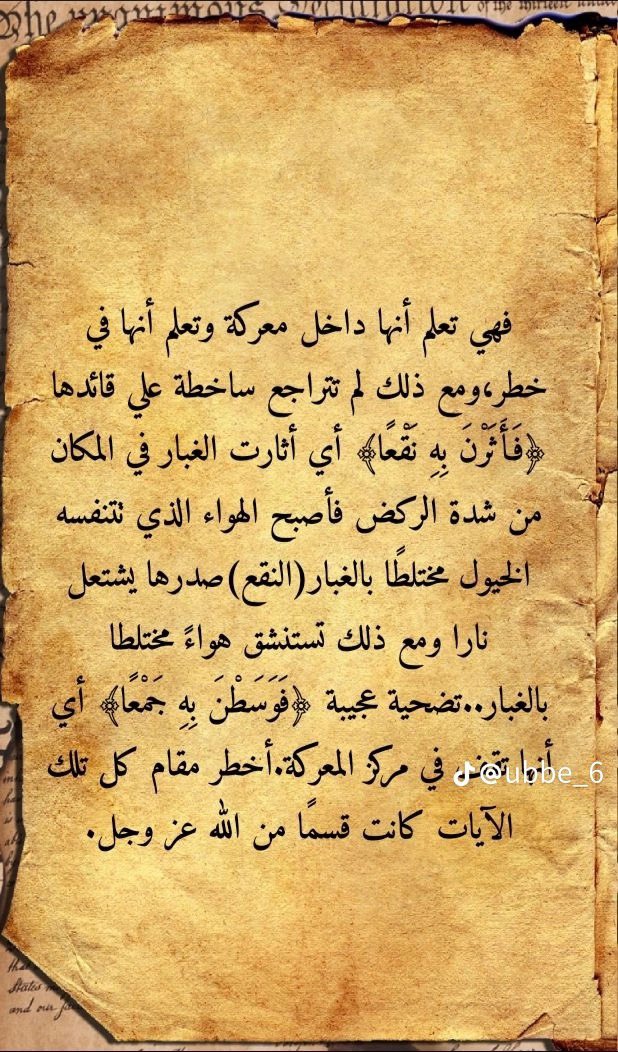 The unanimous Declaration of the thirteen united
فهي تعلم أنها داخل معركة وتعلم أنها في
خطر،ومع ذلك لم تتراجع ساخطة علي قائدها
﴿فَأَثَرْنَ بِهِ نَقْعًا﴾ أي أثارت الغبار في المكان
من شدة الركض فأصبح الهواء الذي تتنفسه
الخيول مختلطًا بالغبار(النقع)صدرها يشتعل
نارا ومع ذلك تستنشق هواءً مختلطا
بالغبار..تضحية عجيبة ﴿فَوَسَطْنَ بِهِ جَمْعًا﴾ أي
في مركز المعركة.أخطر مقام كل تلك
@ubbe_6
الآيات كانت قسمًا من الله عز وجل.
that
States
and our